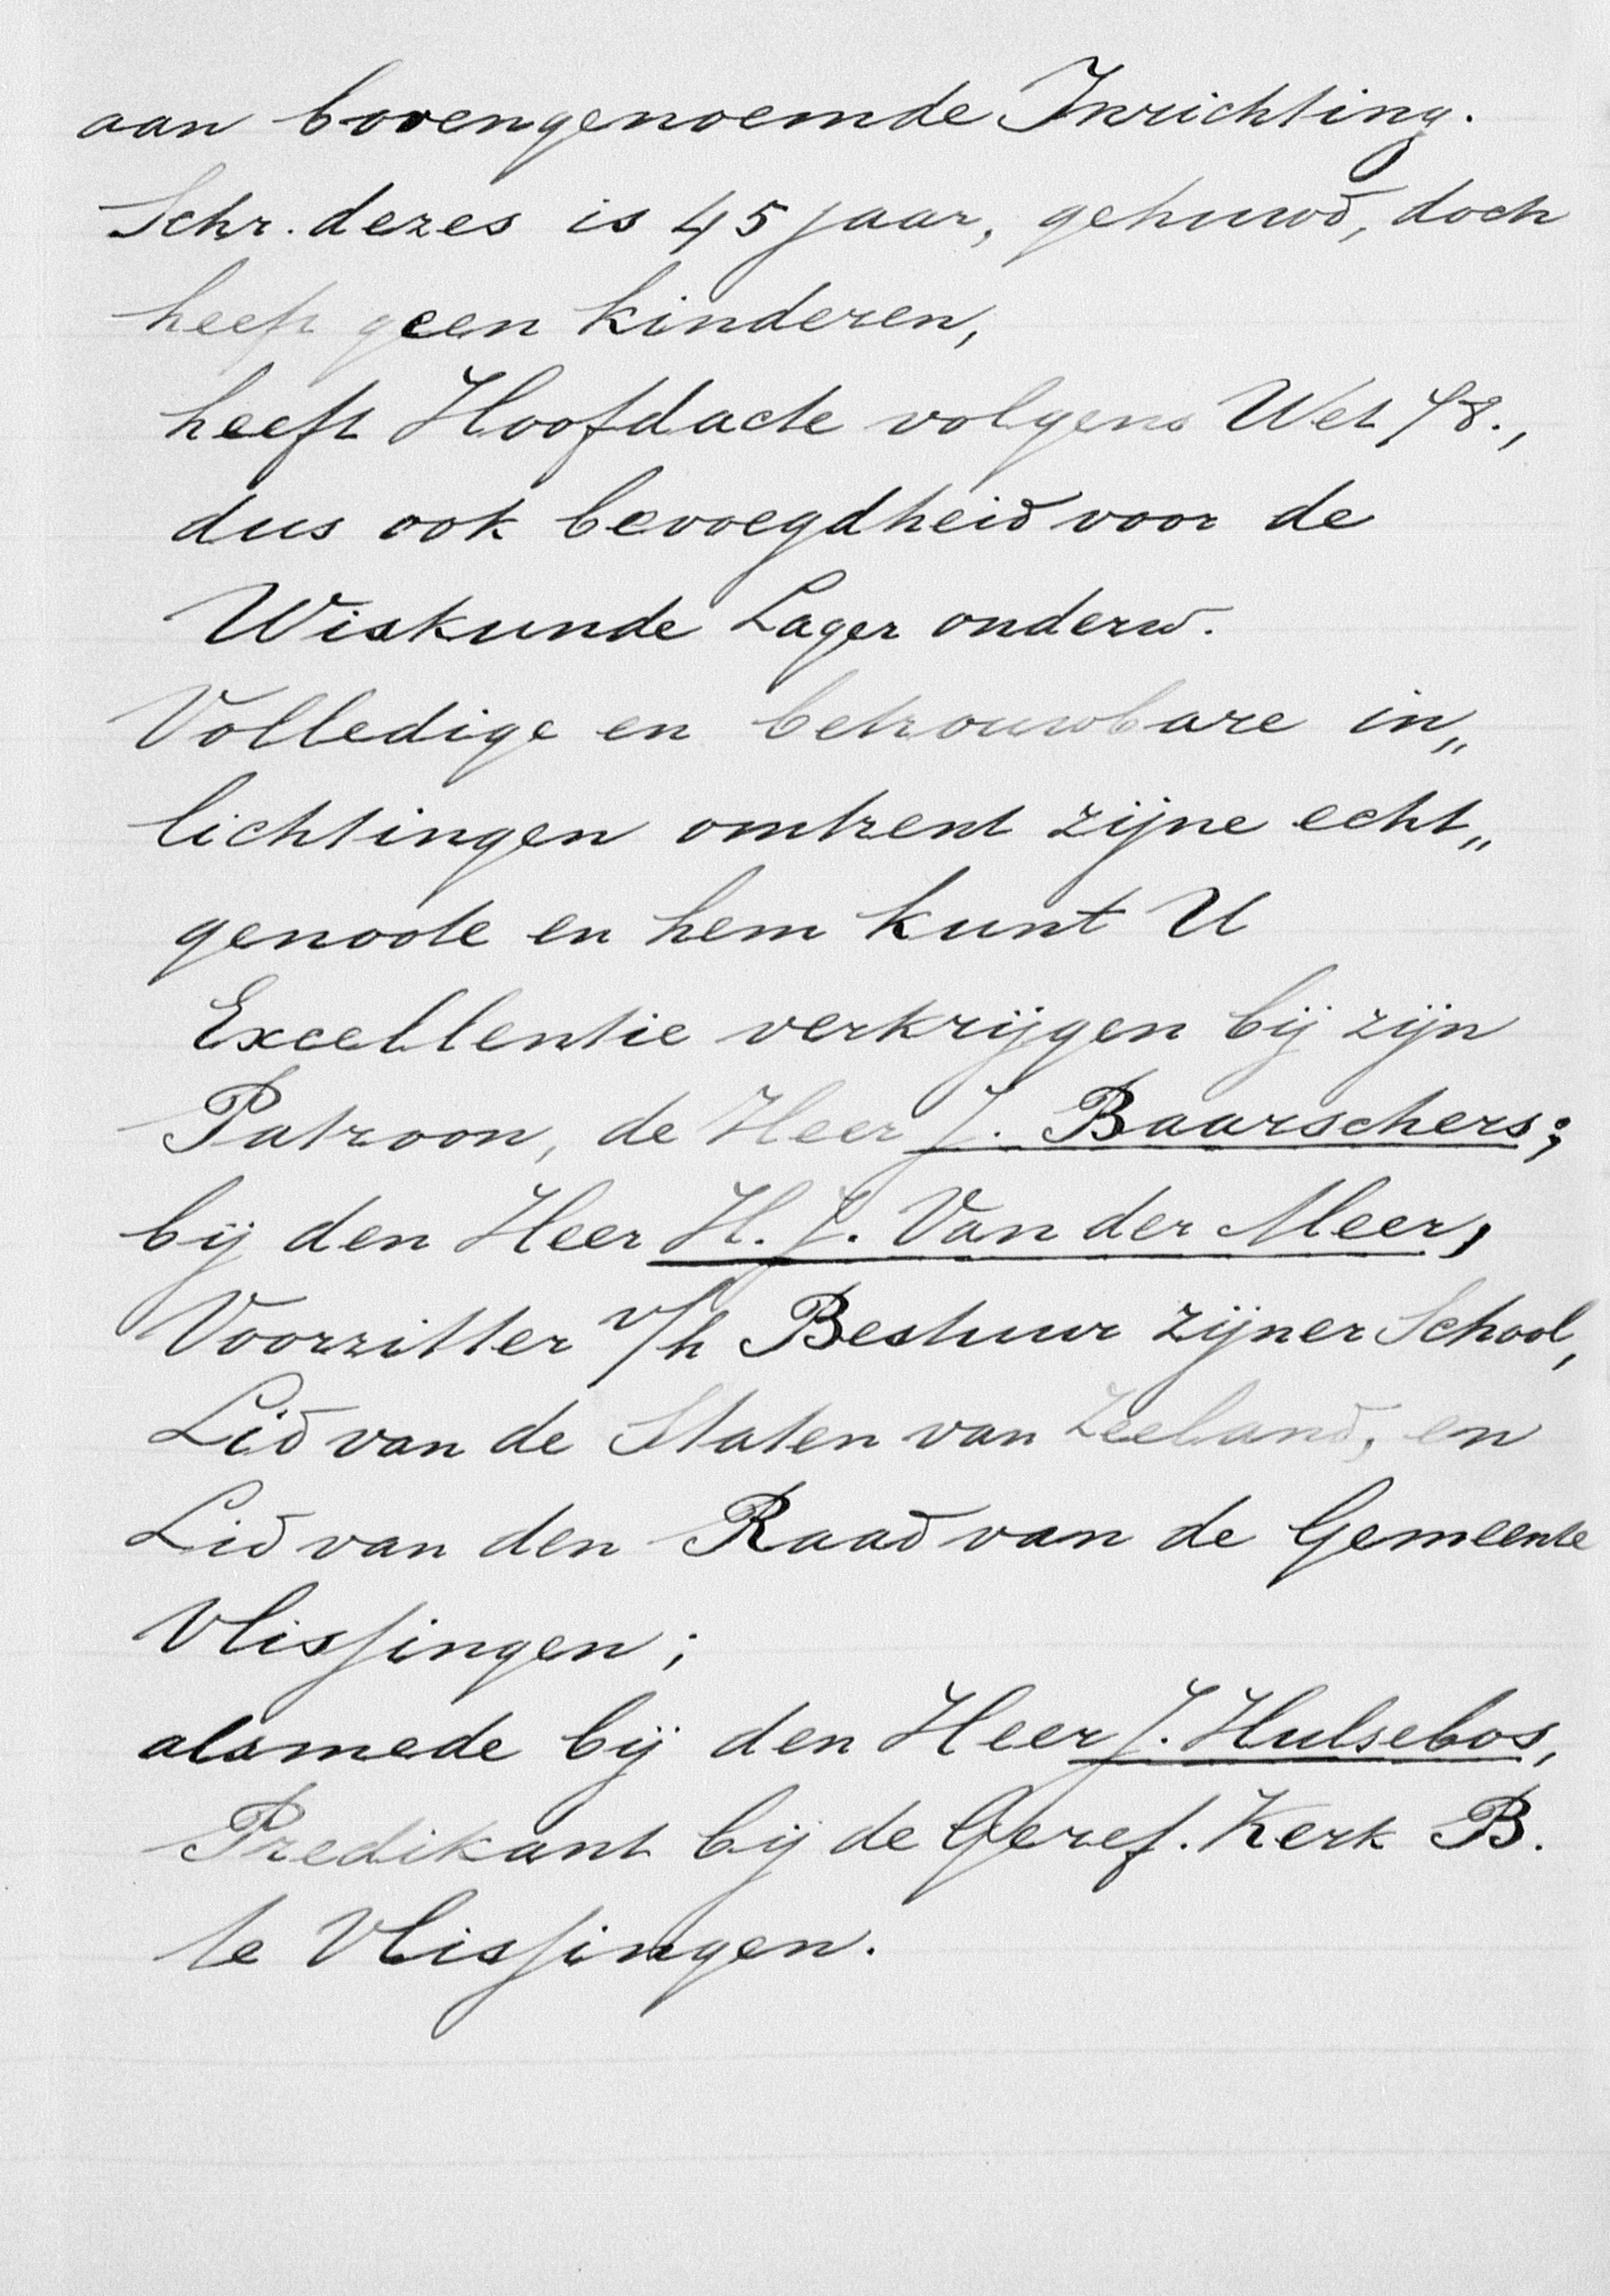 aan bovengenoemde Inrichting.
Schr. dezes is 45 jaar, gehuwd, doch
heeft geen kinderen,
heeft Hoofdacte volgens Wet 78.,
dus ook bevoegdheid voor de
Wiskunde Lager onderw.
Volledige en betrouwbare in„
lichtingen omtrent zijne echt„
genoote en hem kunt U
Excellentie verkrijgen bij zijn
Patroon, de Heer J. Baarschers;
bij den Heer H. J. Van der Meer,
Voorzitter v/h Bestuur zijner School,
Lid van de Staten van Zeeland, en
Lid van den Raad van de Gemeente
Vlissingen;
alsmede bij den Heer J. Hulsebos,
Predikant bij de Geref. Kerk B.
te Vlissingen.